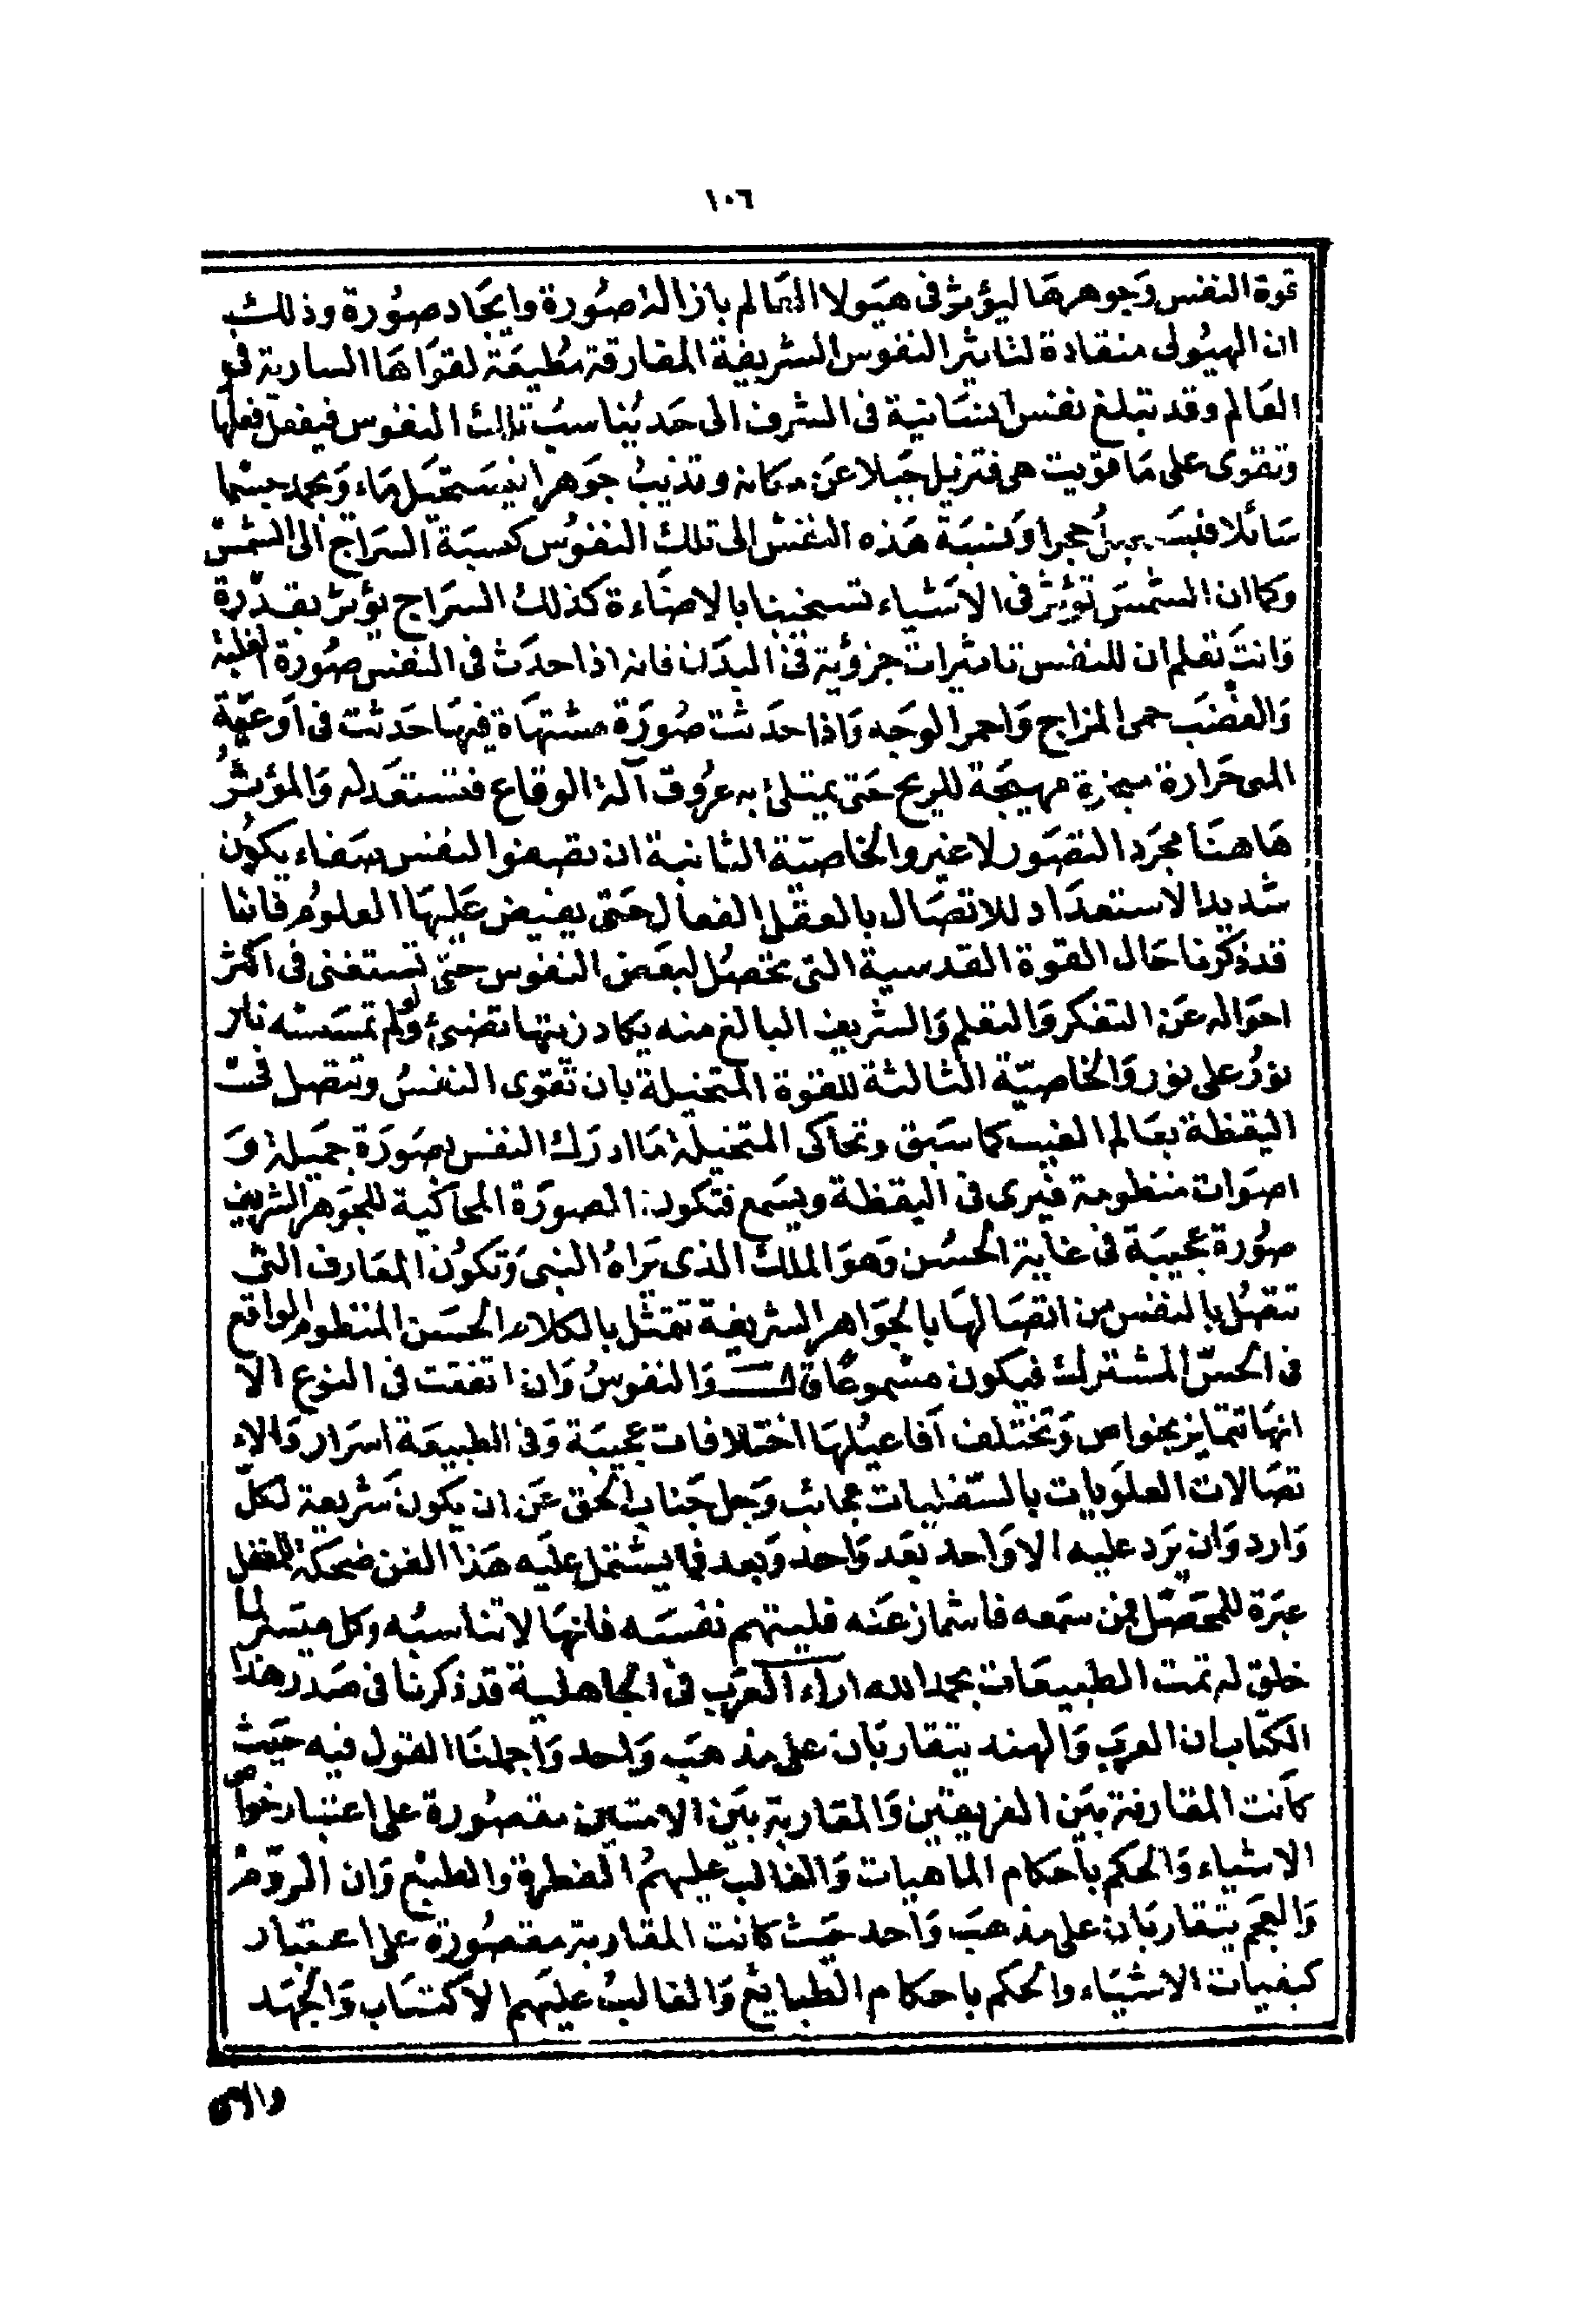 ١٠٦
قوة النفس وَجوهرهَا ليؤثر فى هيَولا العَالم بازالة صُورة وايجَاد صُورة وذلك
ان الهيُولى منقادة لتاثير النفوس الشريفة المفارقة مُطيعَة لقوَاهَا السارية فى
العَالم وقد تبلغ نفس انسَانية فى الشرف الى حَد يُناسبُ تلك النفوس فيفعل فعلهَا
وتقوى على مَا قويت هى فتزيل جَبلا عَن مكانه وتذيبُ جَوهرا فيسَتحيَل مَاء وَيجمد جسمَا
سَائلا فيسَتحيل حجرا وَنسبَة هَذه النفس الى تلك النفوُس كنسبَة السرَاج الى الشمسّ
وكما ان الشمسَ تؤثر فى الاشيَاء تسخينا بالاضَاءة كذلك السرَاج يؤثر بقدرة
وَانتَ تعلم ان للنفس تاثيرات جزؤية فى البدَن فانه اذا حدَث فى النفس صُورة الغلبة
وَالغضَب حمى المزاج وَاحمر الوجَه وَاذا حدَثت صُورَة مشتهَاة فيهَا حَدثت فى اوَعيَة
المنى حَرارة مبخرة مهيجَة للريح حَتى يمتلئ به عرُوق آلة الوقاع فتستعَد له وَالمؤثرُ
هَاهنَا مجرَد التصَور لا غير والخاصيَة الثانية ان تصفوا النفس صفاء يكون
شديد الاستعدَاد للاتصَال بالعقل الفعال حَتى يفيض عَليهَا العلوُم فاننا
قد ذكرنا حَال القوة القدسية التى تحصُل لبعَض النفوس حتىَ تستغنى فى اكثر
احوَاله عَن التفكر وَالتعلم وَالشريف البالغ منه يكاد زيتها تضئ ولو لم تمسَسْه نار
نورُ على نور وَالخاصيَة الثالثة للقوة المتخيلة بان تقوى النفسُ وتتصل فى
اليقظة بعَالم الغيب كما سَبق وتحاكى المتخيلة مَا ادرَك النفس بصَورَة جميَلة وَ
اصوَات منظومة فيَرى فى اليقظة ويسَمع فتكون الصورَة المحَاكية للجوَهر الشريف
صوُرة عجيبَة فى غاية الحسُن وَهوَ الملك الذى يَراهُ النبى وَتكوُن المعَارف التى
تتصُل بالنفس من اتصَالهَا بالجوَاهر الشريفة تتمثل بالكلام الحسَن المنظوم الواقع
فى الحسّ المشترك فيكون مسَموعًا قال وَالنفوسُ وَان اتفقت فى النوع الا
انهَا تتمايز بخواص وَتختلف اَفاعيُلهَا اختلافات عجيبَة وَفى الطبيعَة اسرَار وَالا
تصَالات العلوَيات بالسّفليات عجائب وَجل جَناب الحق عَن ان يَكون شَريعة لكل
وَارد وَان يَرد عليه الا وَاحد بعَد وَاحد وَبعد فما يشتمل علَيه هَذا الفن ضحكة للمغفل
عبَرة للمحَصّل فمن سمَعه فاشماز عَنه فليتهم نفسَه فانهَا لا تناسبُه وَكل ميَسر لما
خلق له تمت الطبيعَات بحمد الله اراء العَرب فى الجَاهلية قد ذكرنا فى صَدر هذا
الكتَاب ان العرَب وَالهند يتقاربَان على مذهَب وَاحد وَاجملنَا القول فيه حيَث
كاَنت المقارنة بيَن الفريقيَن وَالمقاربة بيَن الامتين مقصوُرة على اعتبار خواص
الاشيَاء وَالحكم باحَكام الماهيات وَالغالب عليهمُ الفطرة والطبْع وَان الروم
وَالعجَم يتقاربَان على مذهبَ وَاحد حيَث كانت المقاربة مقصُورَة على اعتبار
كيفيات الاشيَاء والحكَم باحكام الطبايَع وَالغالبُ عليَهم الاكتسَاب وَالجهَد